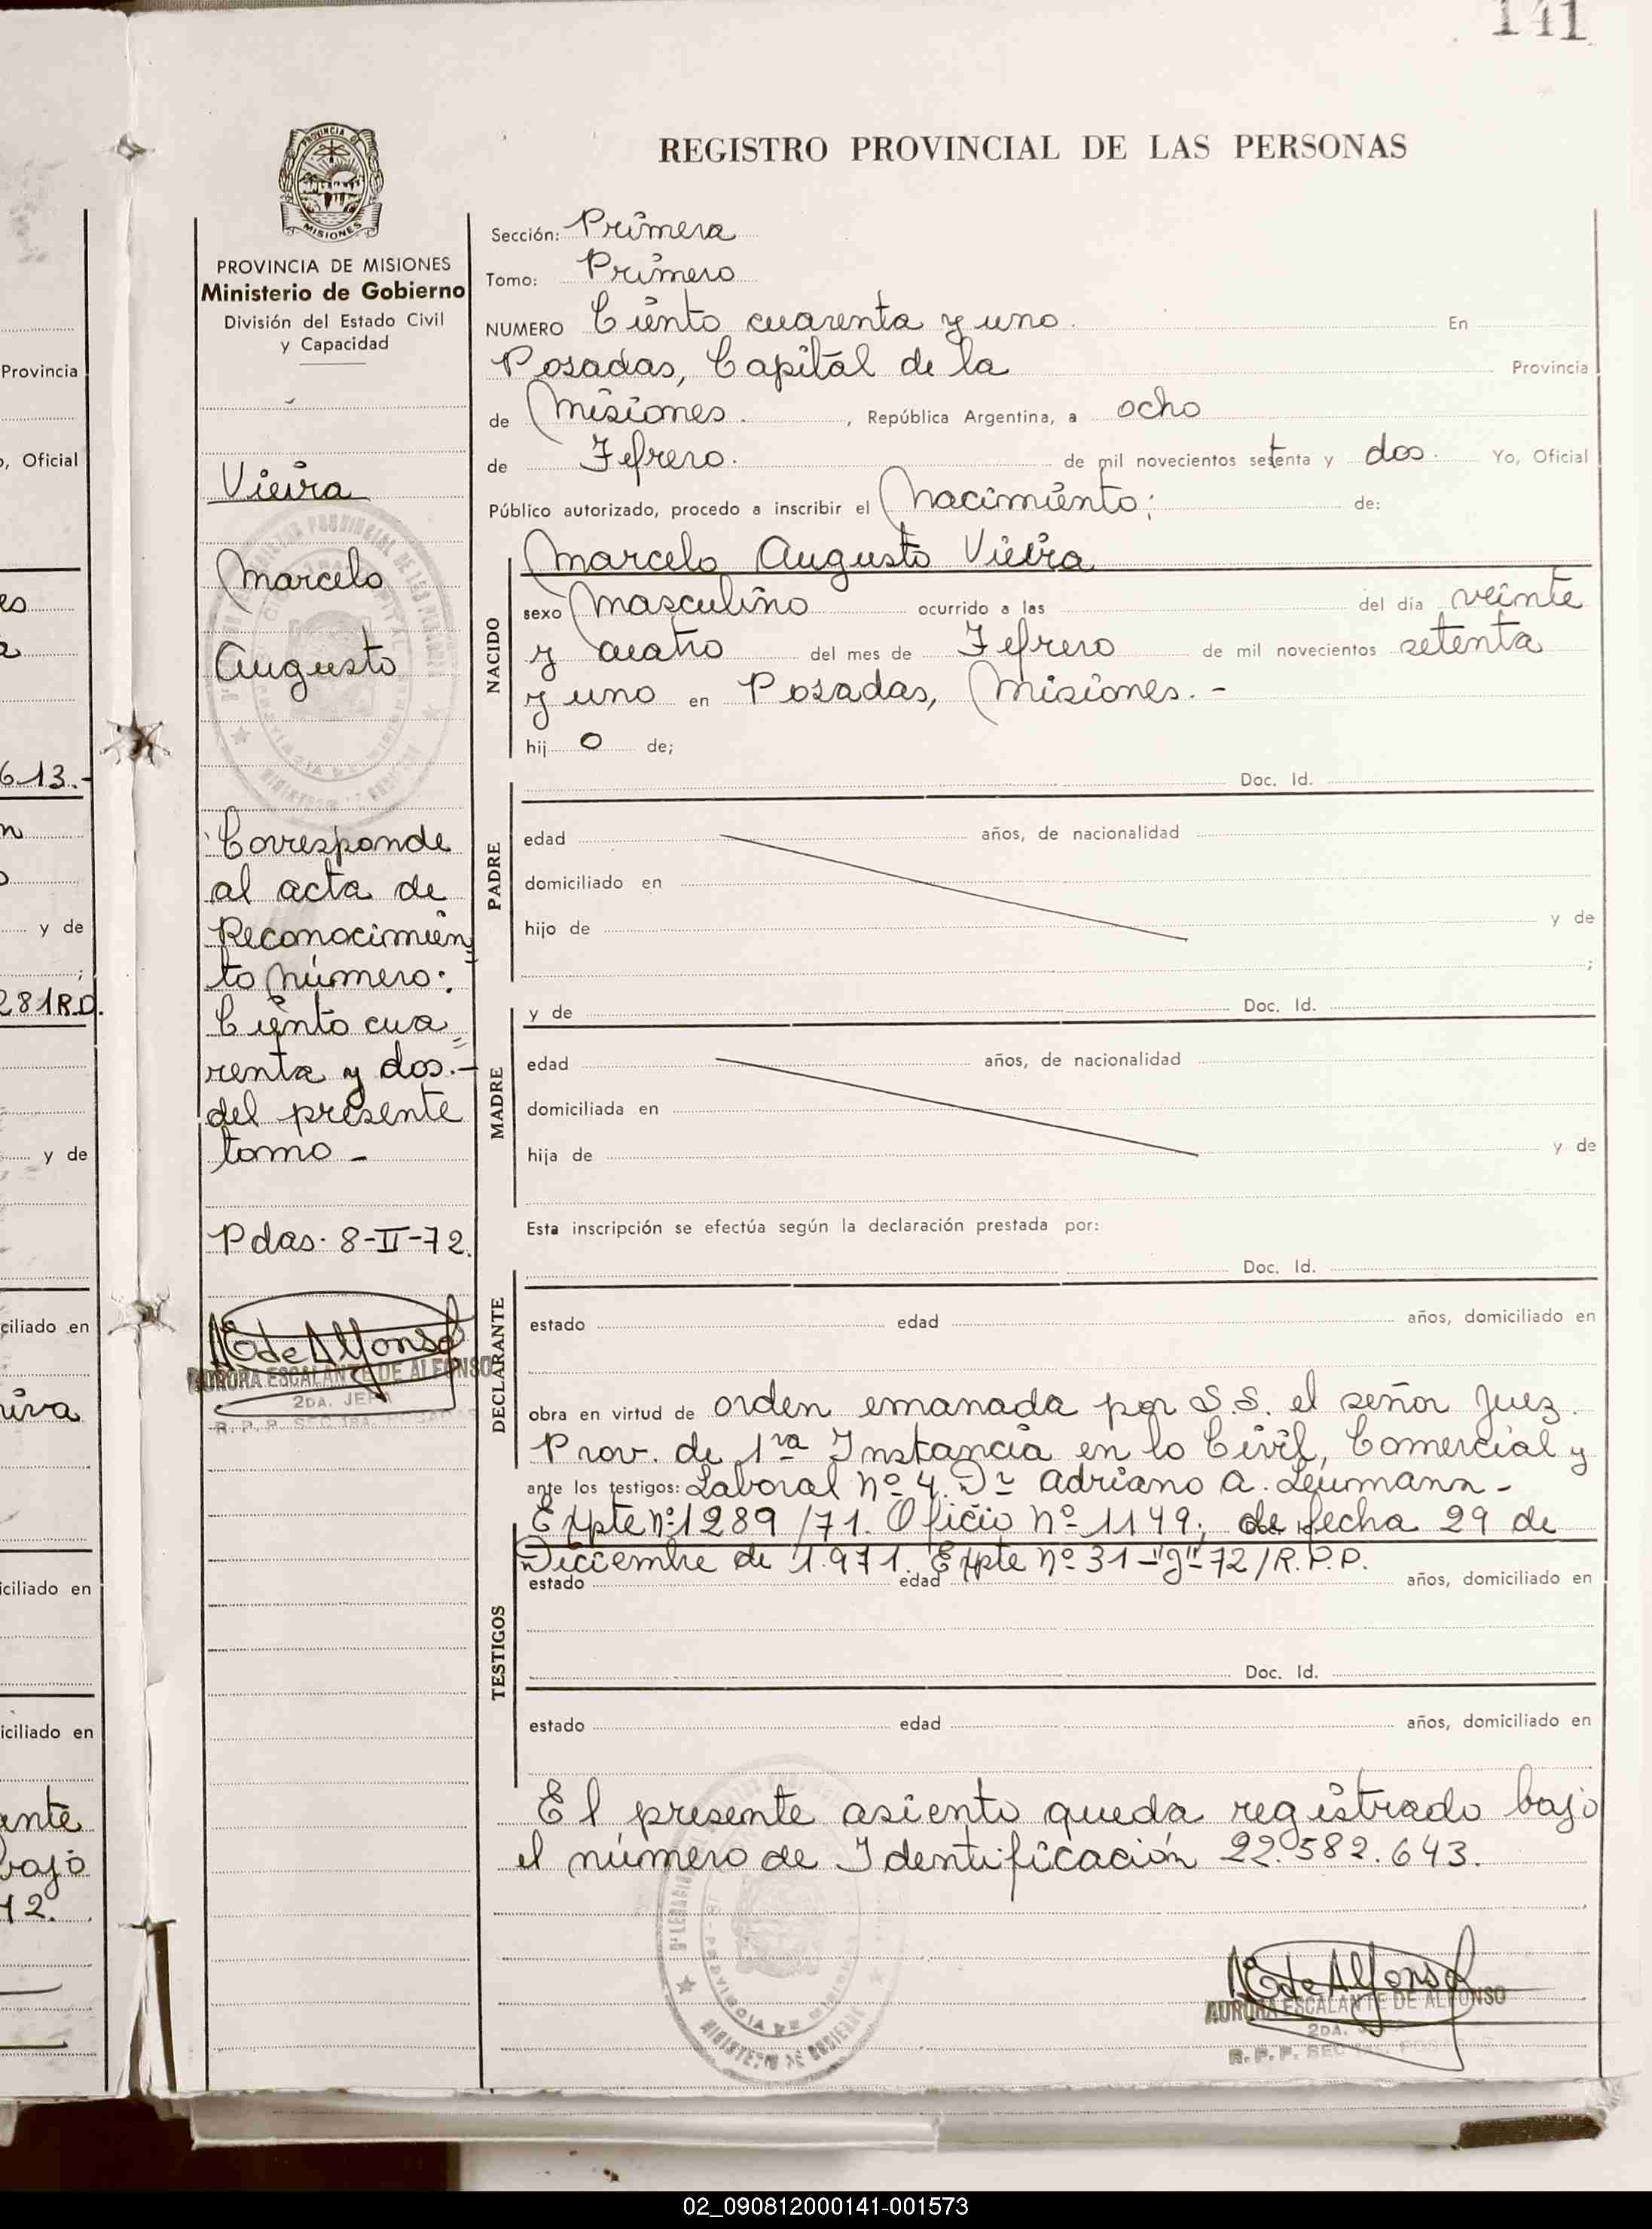 141
PROVINCIA DE MISIONES
PROVINCIA DE MISIONES
Ministerio de Gobierno
División del Estado Civil
y Capacidad
Vieira
Marcelo
Augusto
Corresponde
al acta de
Reconocimien
to número:
Ciento cua
renta y dos.-
del presente
tomo -
Pdas. 8-II-72.
AURORA ESCALANTE DE ALFONSO
2DA. JEFA
R. P. P. SEC 1RA. POSADAS
REGISTRO PROVINCIAL DE LAS PERSONAS
Sección: Primera
Tomo: Primero
NUMERO Ciento cuarenta y uno. En
Posadas, Capital de la Provincia
de Misiones. , República Argentina, a ocho
de Febrero. de mil novecientos setenta y dos. Yo, Oficial
Público autorizado, procedo a inscribir el Nacimiento; de:
NACIDO
Marcelo Augusto Vieira
sexo Masculino ocurrido a las del día veinte
y cuatro del mes de Febrero de mil novecientos setenta
y uno en Posadas, Misiones. -
hij o de;
PADRE
Doc. Id.
edad años, de nacionalidad
domiciliado en
hijo de y de
;
MADRE
y de Doc. Id.
edad años, de nacionalidad
domiciliada en
hija de y de
Esta inscripción se efectúa según la declaración prestada por:
DECLARANTE
Doc. Id.
estado edad años, domiciliado en
obra en virtud de orden emanada por S.S. el señor Juez.
Prov. de 1ra Instancia en lo Civil, Comercial y
ante los testigos: Laboral nº 4. Dr Adriano A. Leumann -
Expte nº 1289/71. Oficio nº 1149; de fecha 29 de
Diciembre de 1.971. Expte nº 31-"J"-72/R.P.P.
TESTIGOS
estado edad años, domiciliado en
Doc. Id.
estado edad años, domiciliado en
El presente asiento queda registrado bajo
el número de Identificación 22.582.643.
AURORA ESCALANTE DE ALFONSO
2DA.
R. P. P. SEC
Provincia
, Oficial
613.-
y de
281R.D.
y de
ciliado en
iciliado en
iciliado en
ante
bajo
72.
02_090812000141-001573